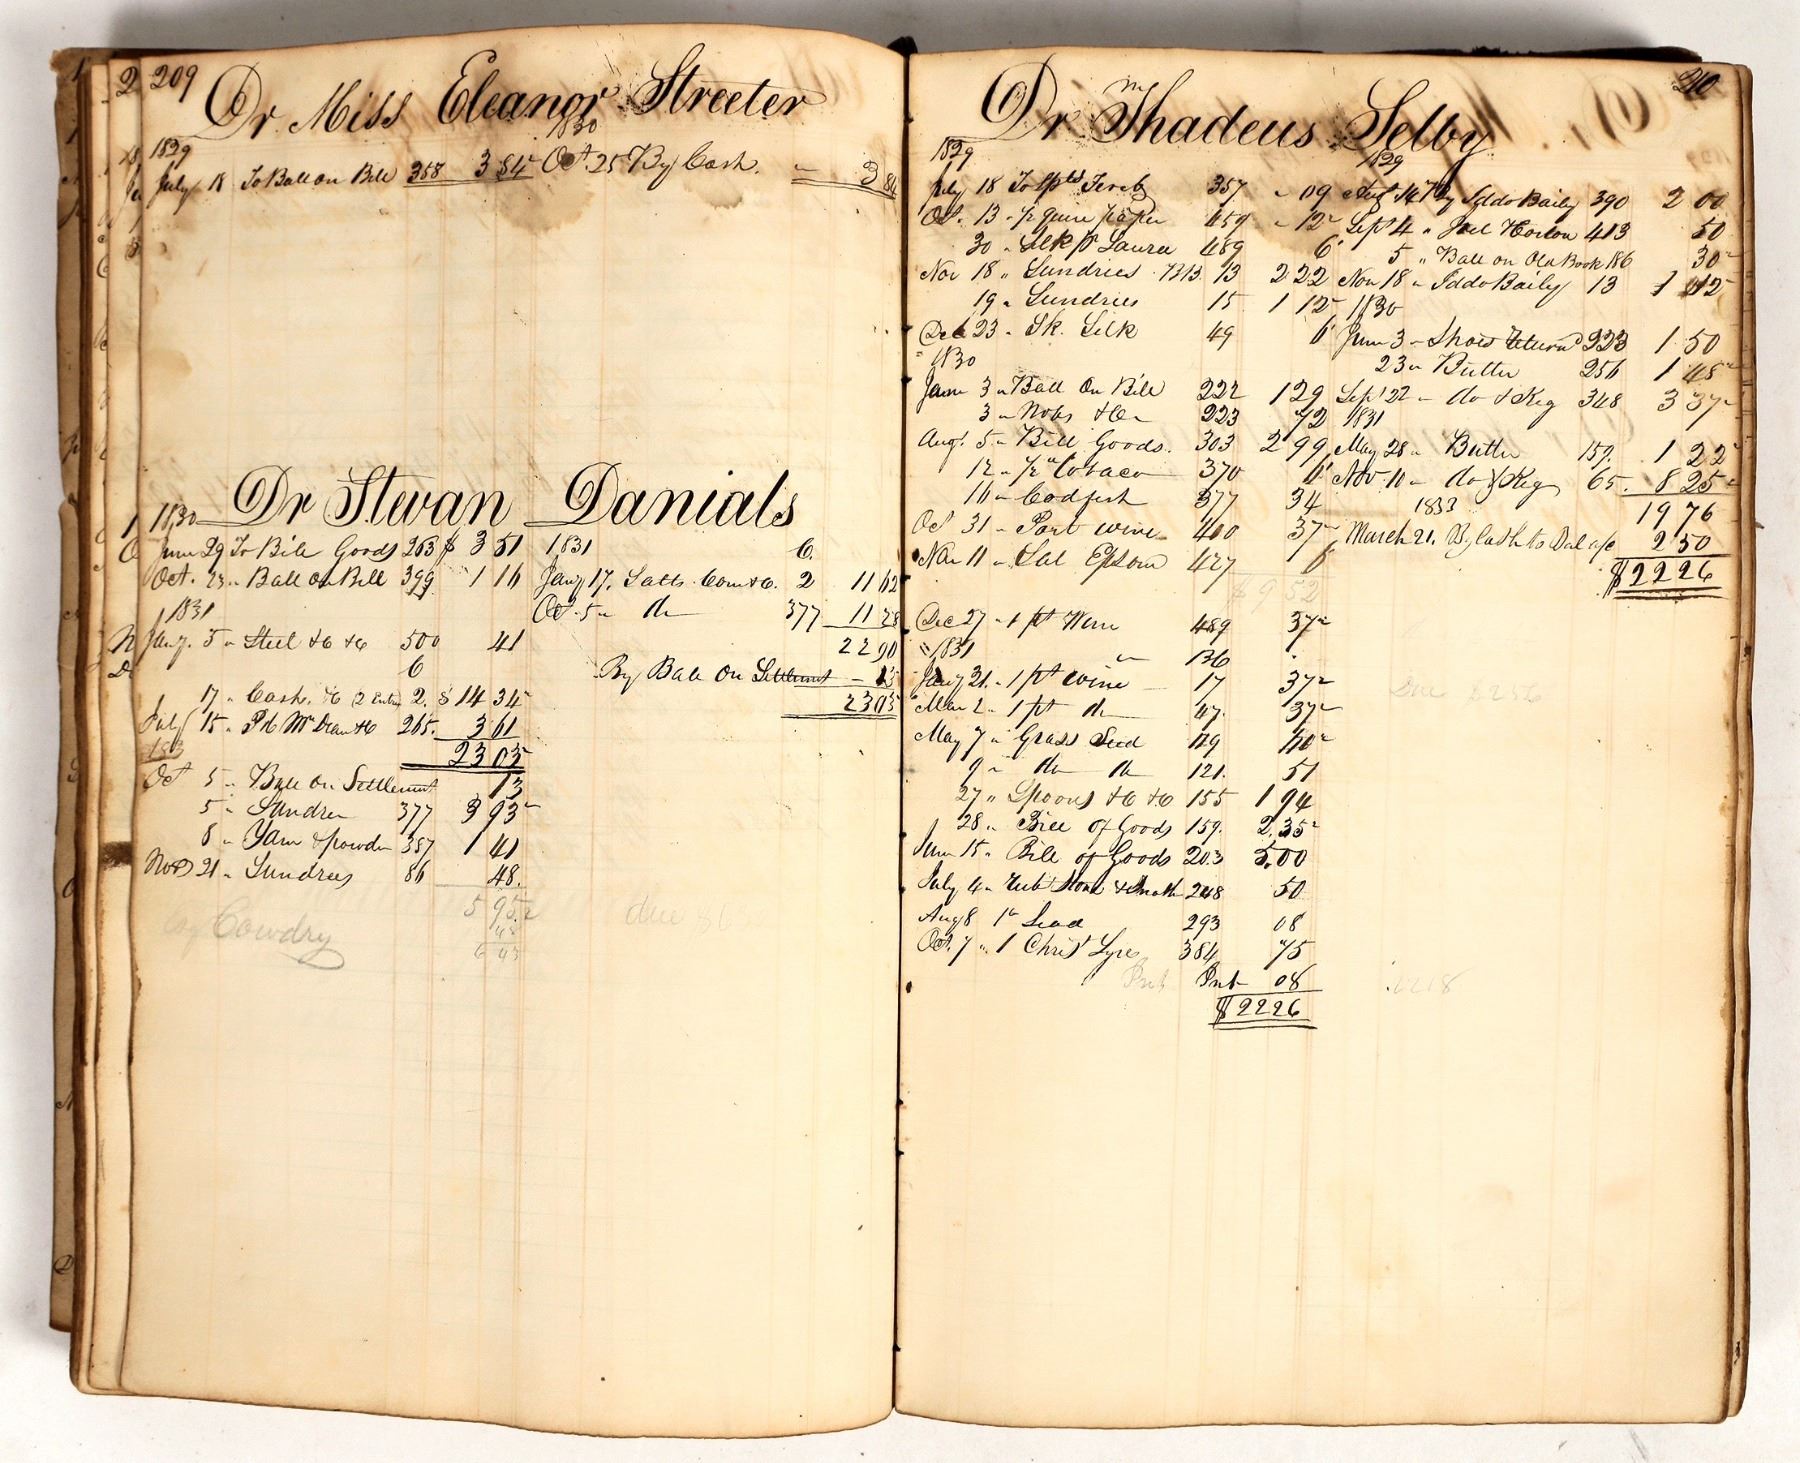 209
Dr Miss Eleanor Streeter
1829
1830
July 18 To Ball on Bill 358 3 84 Oct 25 By Cash. " 3 84
Dr Stevan Danials
1830
June 29 To Bill Goods 263 $ 3 51
Oct. 23 " Ball on Bill 399 1 16
1831
Jany. 5 " Steel &c &c 500 41
6
17 " Cash. &c 2. $ 14 35
July 15 " Pd Mr Dean &c 265. 3 61
23 03
183
Oct 5 " Ball on Settlement 13
5 " Sundres 377 3 93
8 " Yarn & powder 387 1 41
21 " Sundrees 86 48.
5 95
Cowdry
due
1831 6
Jany 17. 2 11 62
Oct. 5 " 377 11 28
22 90
By Ball on Settlement - 13
23 03
210
Dr Mr Thadeus Selby
1829
July 18 To 357 " 09
Oct. 13 " quire paper 459 " 12
30 " Silk pr Laura 489 6
Nov 18 " Sundries 13 2 22
19 " Sundries 15 1 12
Dec 23 " Sk. Silk 49 6
1830
June 3 " Ball On Bill 222 1 29
3 " 223 72
Aug. 5 " Bill Goods. 303 2 99
12 " Tobaco 370 6
16 " Codfish 377 34
Oct 31 " Port wine 37
Nov 11 " Sal Epsom 427 6
$9 52
Dec 27 " 1 pt Wine 489 37
1831
136
Jany 31. " 1 pt wine 17 37
Mar 2 " 1 pt 47. 37
May 7 " Grass Seed
9 " 121. 51
27 " Spoons &c &c 155 1 94
28 " Bill of Goods 159. 2.35
June 15 " Bill of Goods 203 5.00
July 4 " 248 50
Aug 8 Lead 293 08
Oct. 7 " 1 384 75
Int 08
$22 26
1829
Iddo Baily 390 2 00
Sept 4 " Joel Horton 413 50
5 " Ball on Old Book 186 30
Nov 18 " Iddo Baily 13
1830
June 3 " Shoes Return 223 1 50
23 " Butter 256 1 48
Sept 22 " do & Keg 348 3 37
1831
May 28 " Butter 159. 1 22
Nov. 10 " do & Keg 65. 8 25
19 76
1833
March 21. By Cash to Bal a/c 2 50
$22 26
Due $2 56